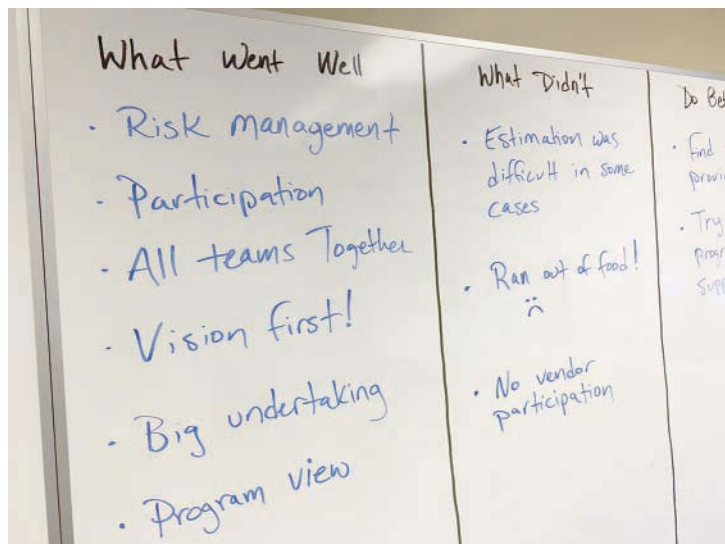 What Went Well
• Risk management
• Participation
• All teams Together
• Vision first!
• Big undertaking
• Program view
What Didn't
• Estimation was
difficult in some
cases
• Ran out of food!
• No vendor
participation
Do
• find
• Try